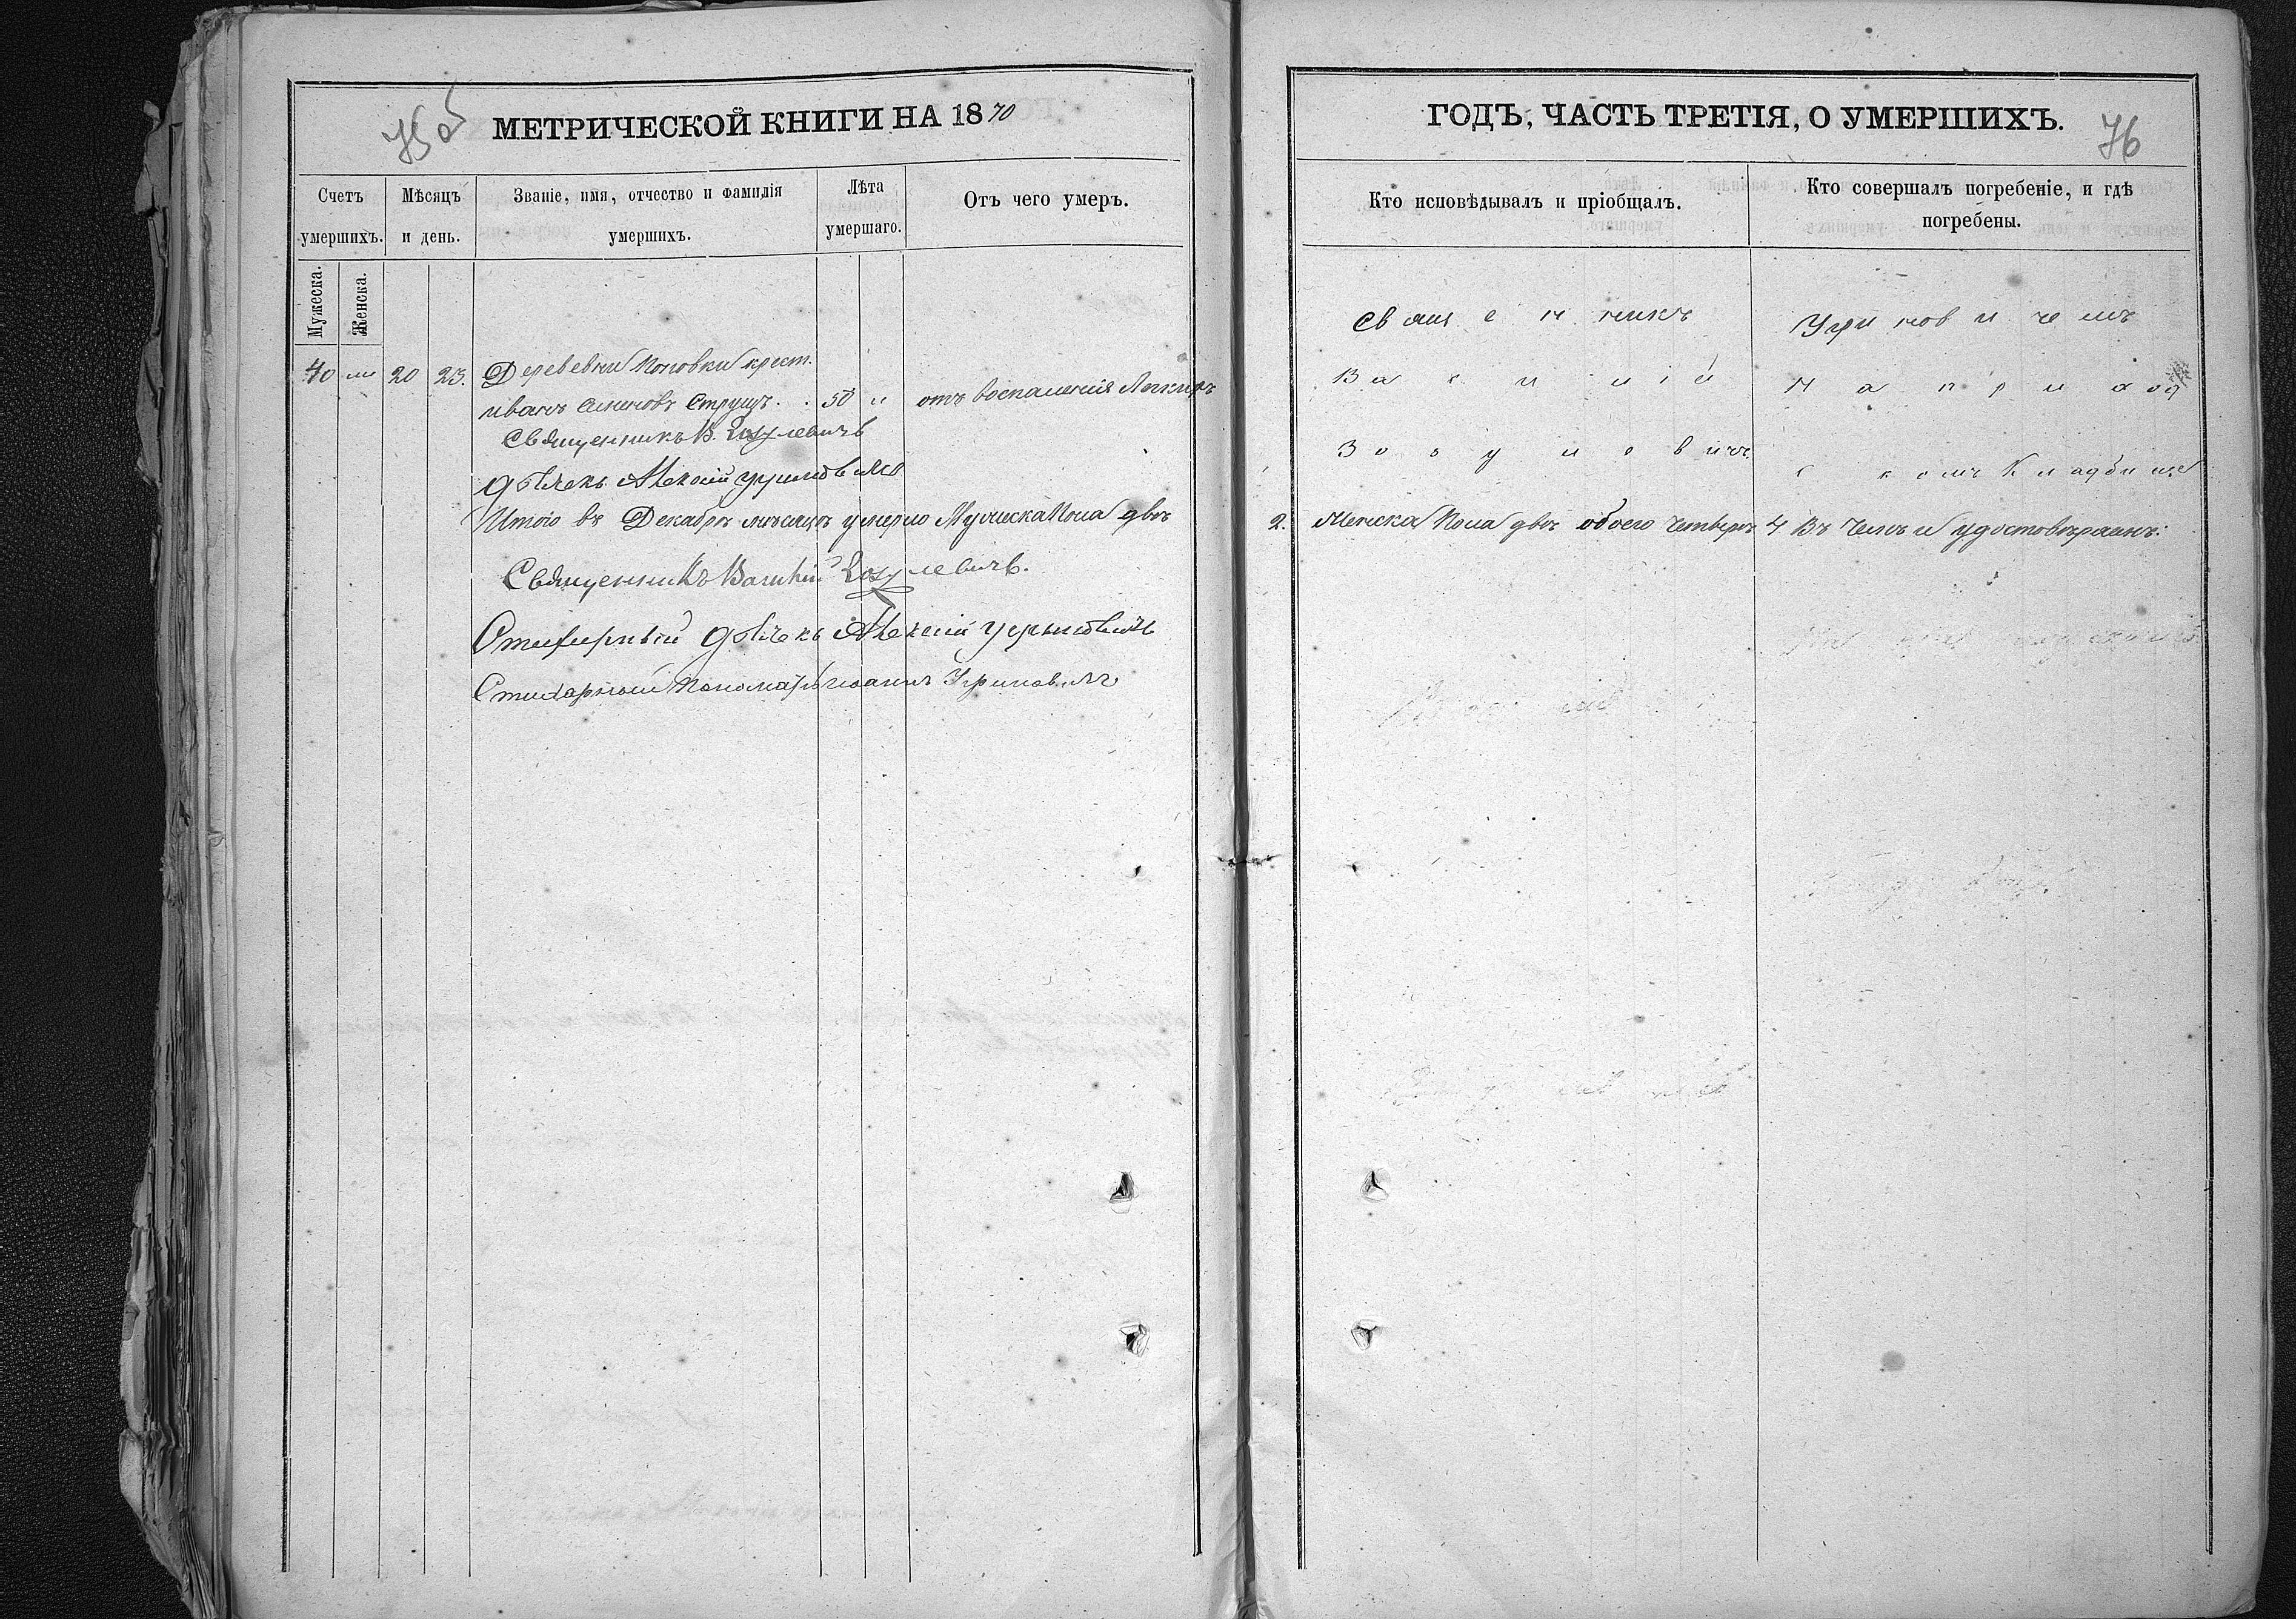 75 об
МЕТРИЧЕСКОЙ КНИГИ НА 1870
Счетъ умершихъ.
Мѣсяцъ и день.
Званіе, имя, отчество и фамилія умершихъ.
Лѣта умершаго.
Отъ чего умеръ.
Мужеска.
Женска.
40 " 20 23. Деревени Поповки крест.
Иванъ Струцъ. . 50 " отъ воспаленія Легкихъ
Священникъ В. Зозулевичъ
Дьячекъ Алексій Угриновичъ
Итого въ Декабрѣ мѣсяцѣ умерло Мужеска Пола двое
Священникъ Василій Зозулевичъ.
Стихарный Дьячекъ Алексій Угриновичъ
Стихарный Пономарь Іоаннъ Угриновичъ
ГОДЪ, ЧАСТЬ ТРЕТІЯ, О УМЕРШИХЪ.
76
Кто исповѣдывалъ и пріобщалъ.
Кто совершалъ погребеніе, и гдѣ погребены.
Священникъ
Василій
Зозулевичъ
Угриновичемъ
на приход
скомъ Кладбищѣ
2. Женска Пола двѣ обоего четверо 4 Въ чемъ и удостовѣряемъ: